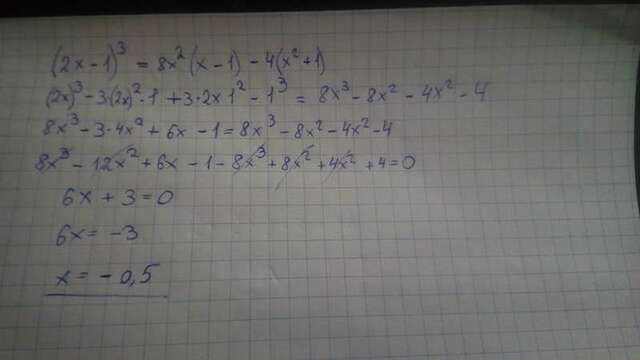 (2x-1)³ = 8x²(x-1) - 4(x²+1)
(2x)³ - 3(2x)²·1 + 3·2x1² - 1³ = 8x³ - 8x² - 4x² - 4
8x³ - 3·4x² + 6x - 1 = 8x³ - 8x² - 4x² - 4
8x³ - 12x² + 6x - 1 - 8x³ + 8x² + 4x² + 4 = 0
6x + 3 = 0
6x = -3
x = -0,5